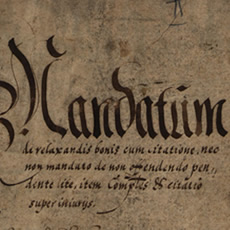 Mandatum
de relaxandis bonis cum citatione, nec
non mandato de non offendendo pen,
dente lite, item Comples & citatio
super iniurijs.